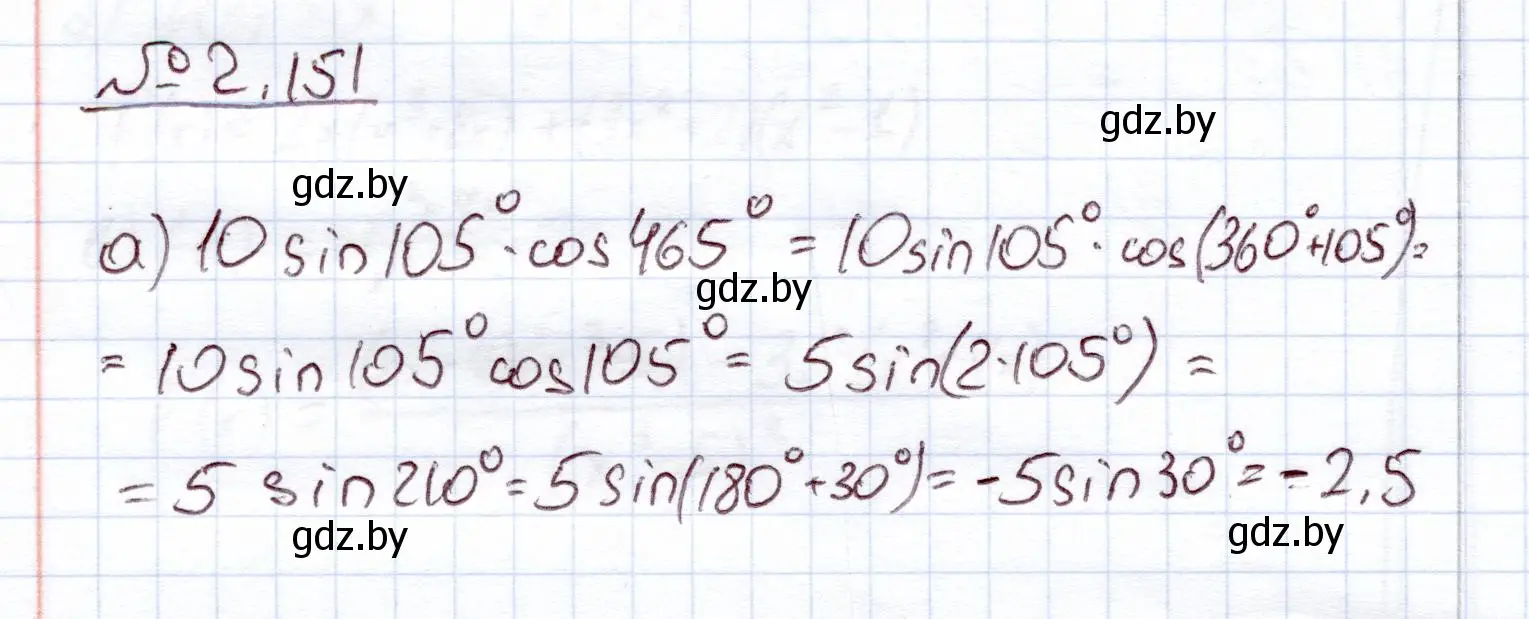 № 2.151
gdz.by
gdz.by
а) 10 sin 105° · cos 465° = 10 sin 105° · cos(360°+105°) =
gdz.by
= 10 sin 105° cos 105° = 5 sin(2·105°) =
= 5 sin 210° = 5 sin(180°+30°) = -5 sin 30° = -2,5
gdz.by
gdz.by